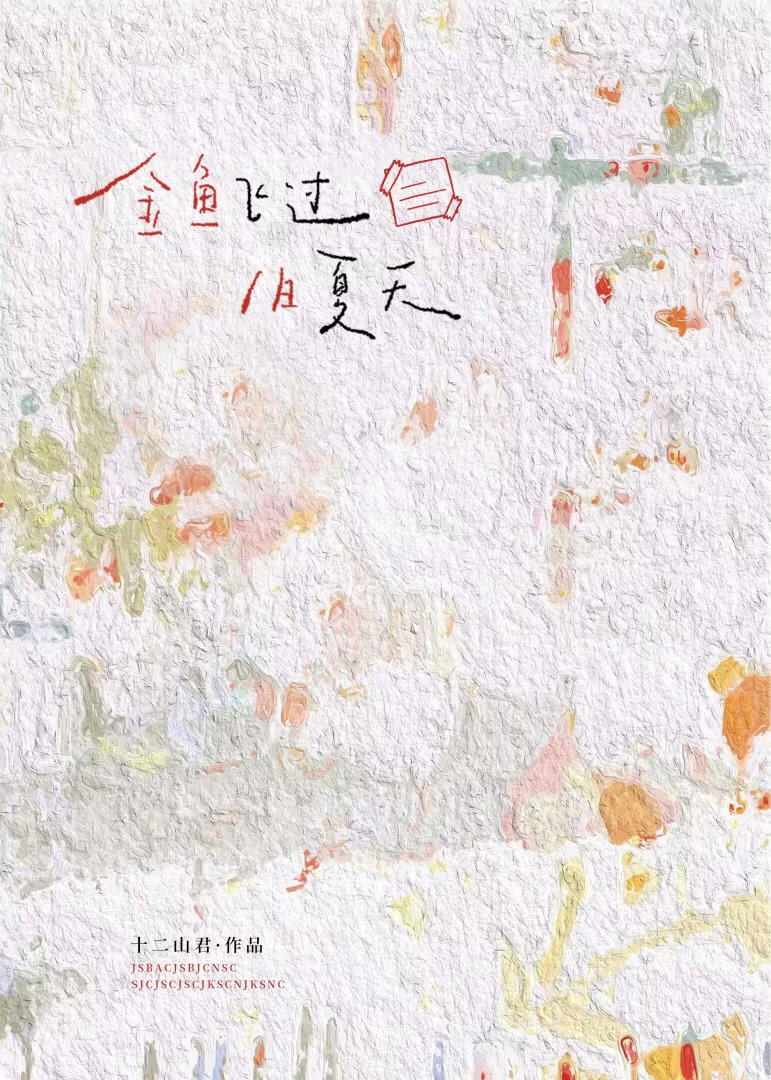 金鱼飞过
八月夏天
十二山君·作品
JSBACJSBJCNSC
SJCJSCJSCJKSCNJKSNC